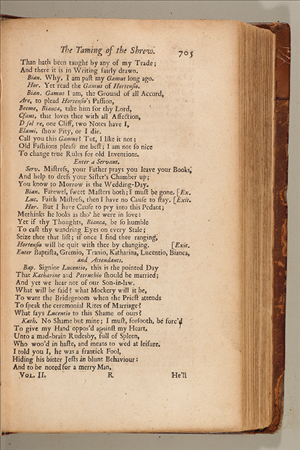 The Taming of the Shrew. 705
Than hath been taught by any of my Trade;
And there it is in Writing fairly drawn.
Bian. Why, I am past my Gamut long ago.
Hor. Yet read the Gamut of Hortensio.
Bian. Gamut I am, the Ground of all Accord,
Are, to plead Hortensio's Passion,
Beeme, Bianca, take him for thy Lord,
Cfaut, that loves thee with all Affection,
D sol re, one Cliff, two Notes have I,
Elami, show Pity, or I die.
Call you this Gamut? Tut, I like it not;
Old Fashions please me best; I am not so nice
To change true Rules for old Inventions.
Enter a Servant.
Serv. Mistress, your Father prays you leave your Books,
And help to dress your Sister's Chamber up;
You know to Morrow is the Wedding-Day.
Bian. Farewel, sweet Masters both; I must be gone. [Ex.
Luc. Faith Mistress, then I have no Cause to stay. [Exit.
Hor. But I have Cause to pry into this Pedant;
Methinks he looks as tho' he were in love:
Yet if thy Thoughts, Bianca, be so humble
To cast thy wandring Eyes on every Stale;
Seize thee that list; if once I find thee ranging,
Hortensio will be quit with thee by changing. [Exit.
Enter Baptista, Gremio, Tranio, Katharina, Lucentio, Bianca,
and Attendants.
Bap. Signior Lucentio, this is the pointed Day
That Katharine and Petruchio should be married;
And yet we hear not of our Son-in-law.
What will be said? what Mockery will it be,
To want the Bridegroom when the Priest attends
To speak the ceremonial Rites of Marriage?
What says Lucentio to this Shame of ours?
Kath. No Shame but mine; I must, forsooth, be forc'd
To give my Hand oppos'd against my Heart,
Unto a mad-brain Rudesby, full of Spleen,
Who woo'd in haste, and means to wed at leisure.
I told you I, he was a frantick Fool,
Hiding his bitter Jests in blunt Behaviour:
And to be noted for a merry Man,
VOL. II. R He'll